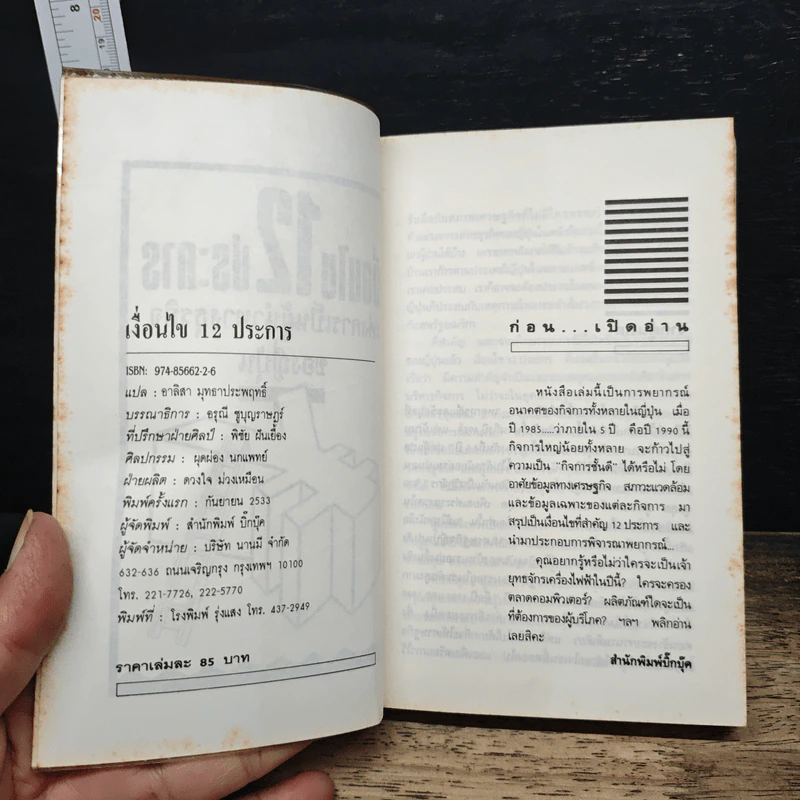 8
20
19
เงื่อนไข 12 ประการ
ISBN: 974-85662-2-6
แปล : อาลิสา มุทธาประพฤทธิ์
บรรณาธิการ : อรุณี ชูบุญราษฎร์
ที่ปรึกษาฝ่ายศิลป์ : พิชัย ฝันเยื้อง
ศิลปกรรม : ผุดผ่อง นกแพทย์
ฝ่ายผลิต : ดวงใจ ม่วงเหมือน
พิมพ์ครั้งแรก : กันยายน 2533
ผู้จัดพิมพ์ : สำนักพิมพ์ บิ๊กบุ๊ค
ผู้จัดจำหน่าย : บริษัท นานมี จำกัด
632-636 ถนนเจริญกรุง กรุงเทพฯ 10100
โทร. 221-7726, 222-5770
พิมพ์ที่ : โรงพิมพ์ รุ่งแสง โทร. 437-2949
ราคาเล่มละ 85 บาท
ก่อน...เปิดอ่าน
หนังสือเล่มนี้เป็นการพยากรณ์
อนาคตของกิจการทั้งหลายในญี่ปุ่น เมื่อ
ปี 1985.....ว่าภายใน 5 ปี คือปี 1990 นี้
กิจการใหญ่น้อยทั้งหลาย จะก้าวไปสู่
ความเป็น "กิจการชั้นดี" ได้หรือไม่ โดย
อาศัยข้อมูลทางเศรษฐกิจ สภาวะแวดล้อม
และข้อมูลเฉพาะของแต่ละกิจการ มา
สรุปเป็นเงื่อนไขที่สำคัญ 12 ประการ และ
นำมาประกอบการพิจารณาพยากรณ์...
คุณอยากรู้หรือไม่ว่าใครจะเป็นเจ้า
ยุทธจักรเครื่องไฟฟ้าในปีนี้? ใครจะครอง
ตลาดคอมพิวเตอร์? ผลิตภัณฑ์ใดจะเป็น
ที่ต้องการของผู้บริโภค? ฯลฯ พลิกอ่าน
เลยสิคะ
สำนักพิมพ์บิ๊กบุ๊ค